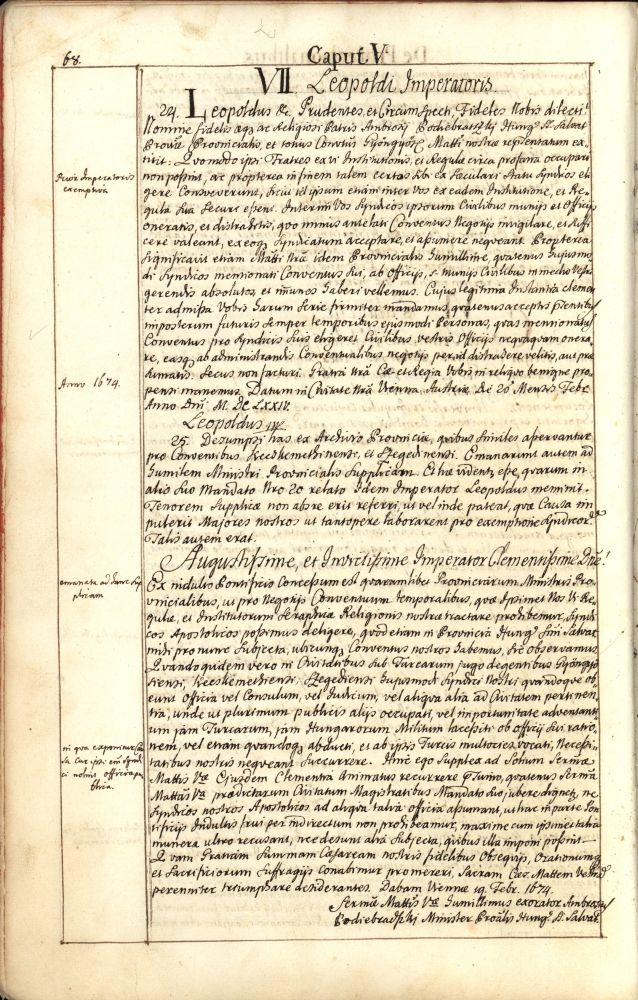 68.
Caput V
VII. Leopoldi Imperatoris.
24. Leopoldus &c. Prudentes, et Circumspecti, Fideles Nobis dilecti!
Nomine fidelis aeq ac Religiosi Patris Ambrosij Podiebratszkij Hung. S. Salvat.
Provae Provincialis, et totius Convtus Gyöngyös. Matti nostrae repraesentatum ex-
titit: Quomodo ipsi Fratres ex vi Institutionis, et Regulae circa profana occupari
non possint, ac propterea in finem talem certos sibi ex Saeculari Statu Syndicos eli
gere Consveverunt, sicut id ipsum etiam inter vos ex eadem Institutione, et Re-
gula sua securi essent. Interim Vos Syndicos ipsorum Civilibus munijs et Officijs
oneratis, et distrahitis, quo minus antelati Conventus Negotijs invigilare, et suffi
cere valeant, ex eoq Syndicatum acceptare, et assumere nequeant. Propterea
Significavit etiam Matti Nrae idem Provincialis humillime, quatenus hujusmo
di Syndicos mentionati Conventus sui, ab Officijs, et munijs Civilibus in medio Vestri
gerendis absolutos, et immunes haberi vellemus. Cujus legitima Instantia clemen
ter admissa Vobis harum serie firmiter mandamus, quatenus acceptis praesentibus
imposterum futuris semper temporibus ejusmodi Personas, quas mentionatus
Conventus pro Syndicis suis eligeret Civilibus vestris Officijs nequaquam onera
re, easq ab administrandis Conventualibus negotijs per id distrahere velitis, aut prae
sumatis. Secus non facturi. Gratia Nra Cae et Regia Vobis in reliquo benigne pro
pensi manemus. Datum in Civitate Nra Vienna Austriae Die 20 Mensis Febr.
Anno Dni M. DC LXXIV.
Leopoldus
25. Desumpsi has ex Archivis Provinciae, quibus similes asservantur
pro Conventibus Kecskemethiensi, et Szegediensi. Emanarunt autem ad
humilem Ministri Provincialis Supplicam. Et hae videntr esse, quarum in
alio suo Mandato Nro 20 relato Idem Imperator Leopoldus meminit.
Tenorem Supplicae non abs re erit referri, ut vel inde pateat, quae Causa im
pulerit Majores nostros ut tantopere laborarent pro exemptione Syndicor.
Talis autem erat.
Augustissime, et Invictissime Imperator Clementissime Dne!
Ex indulto Pontificio Concessum est quarumlibet Provinciarum Ministris Pro-
vincialibus, ut pro Negotijs Conventuum temporalibus, quae Ipsimet Nos Vi Re-
gulae, et Institutorum Seraphicae Religionis nostrae tractare prohibemur, Syndi
cos Apostolicos possimus deligere, quod etiam in Provincia Hung. Smi Salvat.
mihi pro nunc subjecta, ubicunq Conventus nostros habemus, sic observamus.
Quandoquidem vero in Civitatibus sub Turcarum jugo degentibus Gyöngyö
siensi, Kecskemethiensi, Szegediensi hujusmodi Syndici Nostri quandoque ob
eunt Officia vel Consulum, vel Judicum, vel aliqua alia ad Civitatem pertinen
tia, unde ut plurimum publicis alijs occupati, vel importunitate adventanti
um jam Turcarum, jam Hungarorum Militum lacessiti ob officij sui ratio-
nem, vel etiam quandoq abducti, et ab ipsis Turcis multoties vocati, Necessi-
tatibus nostris nequeant succurrere. Hinc ego Supplex ad Solium Sermae
Mattis Vrae Ejusdem Clementia Animatus recurrere praesumo, quatenus Serma
Mattas Vra praedictarum Civitatum Magistratibus Mandato suo jubere dignetr, ne
Syndicos nostros Apostolicos ad aliqua talia officia assumant, ut hac in parte Pon
tificijs Indultis frui per indirectum non prohibeamur, maxime cum ipsimet talia
munera ultro recusant, nec desunt alia Subjecta, quibus illa imponi possint.
Quam Gratiam Summam Caesaream nostris fidelibus Obsequijs, Orationumq
et Sacrificiorum Suffragijs conabimur promereri, Sacram Caes. Mattem Vestram
perenniter triumphare desiderantes. Dabam Viennae 19. Febr. 1674.
Sermae Mattis Vrae humillimus exorator Ambrosius
Podiebradszki Minister Provlis Hung. S. Salvat.
Prior Imperatoris
exemptiva
Anno 1674.
emanata ad hanc sup
plicam
in qua exponitur Cau
sa cur ipsi
ci nolint officia pu
blica.